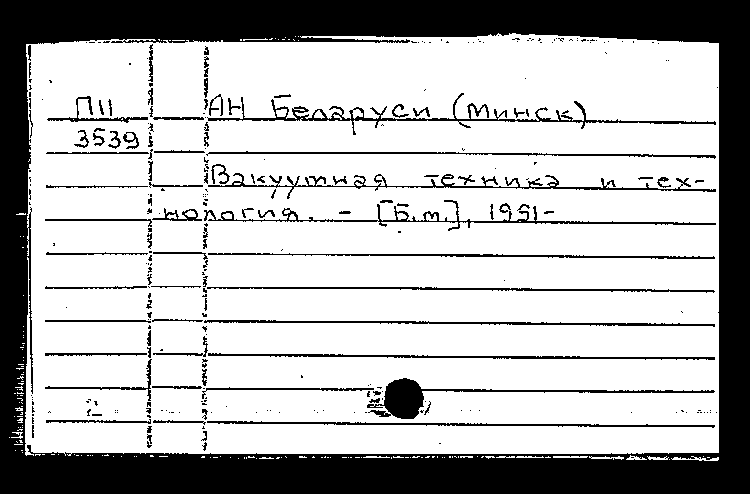 П11 АН Беларуси (Минск)
3539
Вакуумная техника и тех-
нология. - [Б.м.], 1991-
2